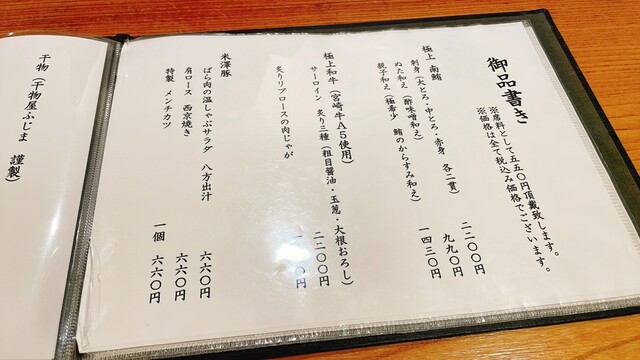 御品書き
※席料として五五〇円頂戴致します。
※価格は全て税込み価格でございます。
極上 南鮪
刺身（大とろ・中とろ・赤身 各二貫） 二二〇〇円
ぬた和え（酢味噌和え） 九九〇円
親子和え（極希少 鮪のからすみ和え） 一四三〇円
極上和牛（宮崎牛A5使用）
サーロイン 炙り三種（粗目醤油・玉葱・大根おろし） 二二〇〇円
炙りリブロースの肉じゃが 〇円
米澤豚
ばら肉の温しゃぶサラダ 八方出汁 六六〇円
肩ロース 西京焼き 六六〇円
特製 メンチカツ 一個 六六〇円
干物（干物屋ふじま 謹製）